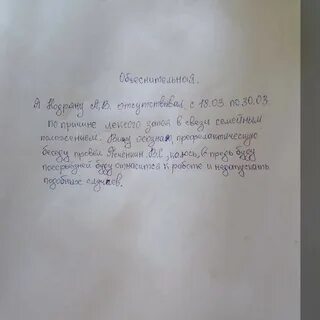 Обьеснительная.
Я Кодряну А,В. отсутствовал, с 18.03 по 30.03.
по причине легкого запоя в свези семейным
положением. Вину осознал, профилактическую
беседу провёл В.С, каюсь, в грудь буду
посерьёзней буду относится к работе и недопускать
подобных случаев.